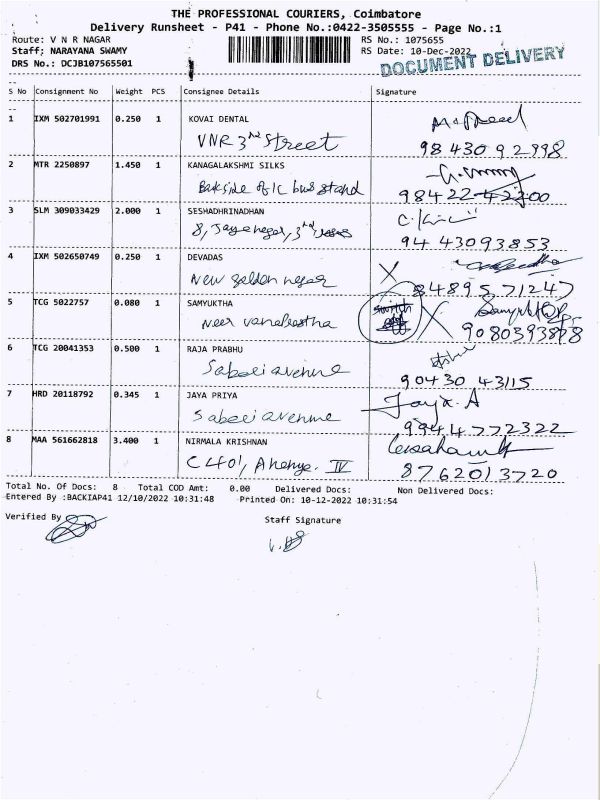 THE PROFESSIONAL COURIERS, Coimbatore
Delivery Runsheet - P41 - Phone No.:0422-3505555 - Page No.:1
Route: V N R NAGAR
RS No.: 1075655
Staff; NARAYANA SWAMY
RS Date: 10-Dec-2022
DRS No.: DCJB107565501
DOCUMENT DELIVERY
S No Consignment No Weight PCS Consignee Details Signature
1 IXM 502701991 0.250 1 KOVAI DENTAL
VNR 3rd Street
98430 92998
2 MTR 2250897 1.450 1 KANAGALAKSHMI SILKS
Backside of IC bus stand
98422-42200
3 SLM 309033429 2.000 1 SESHADHRINADHAN
8, Jayanagar, 3rd cross
94 43093853
4 IXM 502650749 0.250 1 DEVADAS
New golden nagar
X 84895 71247
5 TCG 5022757 0.080 1 SAMYUKTHA
switch off X
9080393898
6 TCG 20041353 0.500 1 RAJA PRABHU
Sabari avenue
90430 43115
7 HRD 20118792 0.345 1 JAYA PRIYA
Jaya. A
Sabari avenue
99414772322
8 MAA 561662818 3.400 1 NIRMALA KRISHNAN
C 401, IV
8762013720
Total No. Of Docs: 8 Total COD Amt: 0.00 Delivered Docs: Non Delivered Docs:
Entered By :BACKIAP41 12/10/2022 10:31:48 Printed On: 10-12-2022 10:31:54
Verified By
Staff Signature